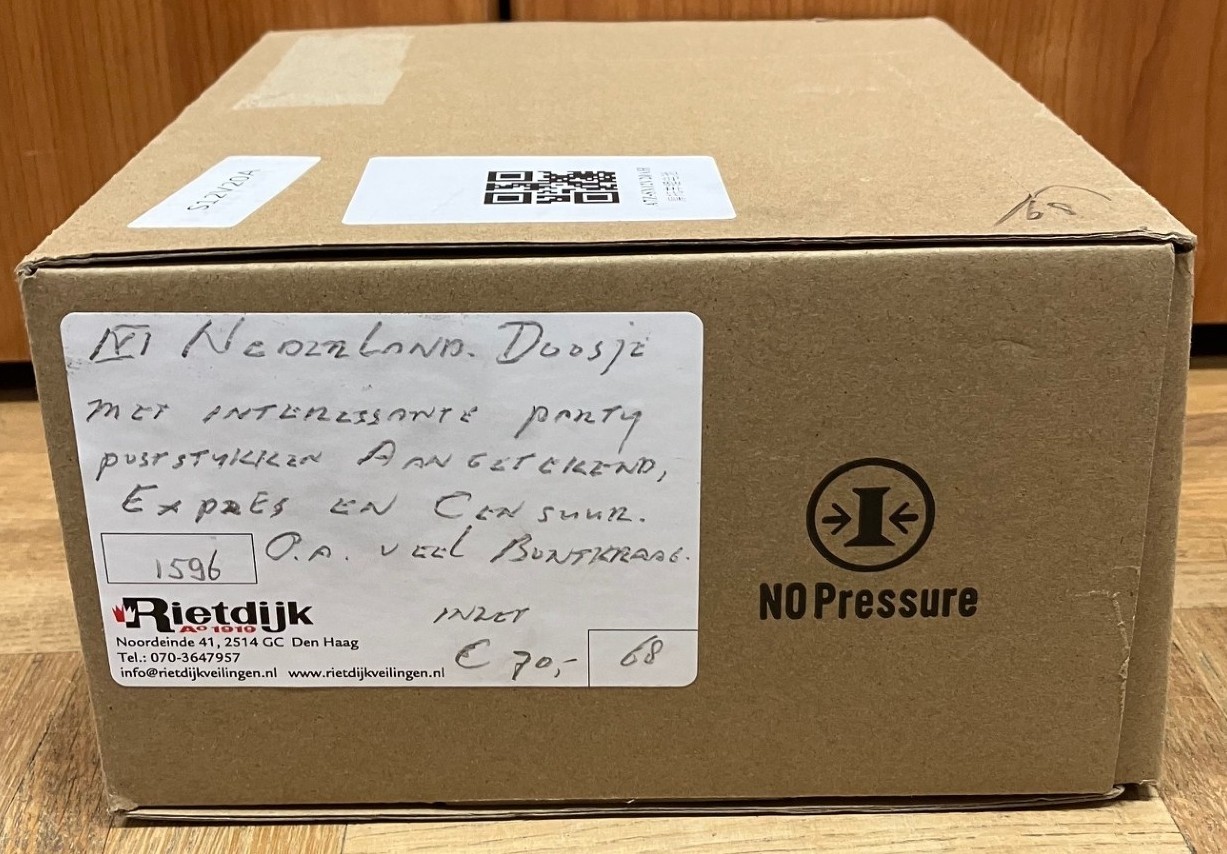 S12V20A
168
IVI NEDERLAND. DOOSJE
MET INTERESSANTE PARTY
POSTSTUKKEN AANGETEKEND,
EXPRES EN CENSUUR.
O.A. VEEL BONTKRAAG.
1596
Rietdijk
Aº 1919
INZET
Noordeinde 41, 2514 GC Den Haag
Tel.: 070-3647957
€ 70,-
68
info@rietdijkveilingen.nl www.rietdijkveilingen.nl
NO Pressure